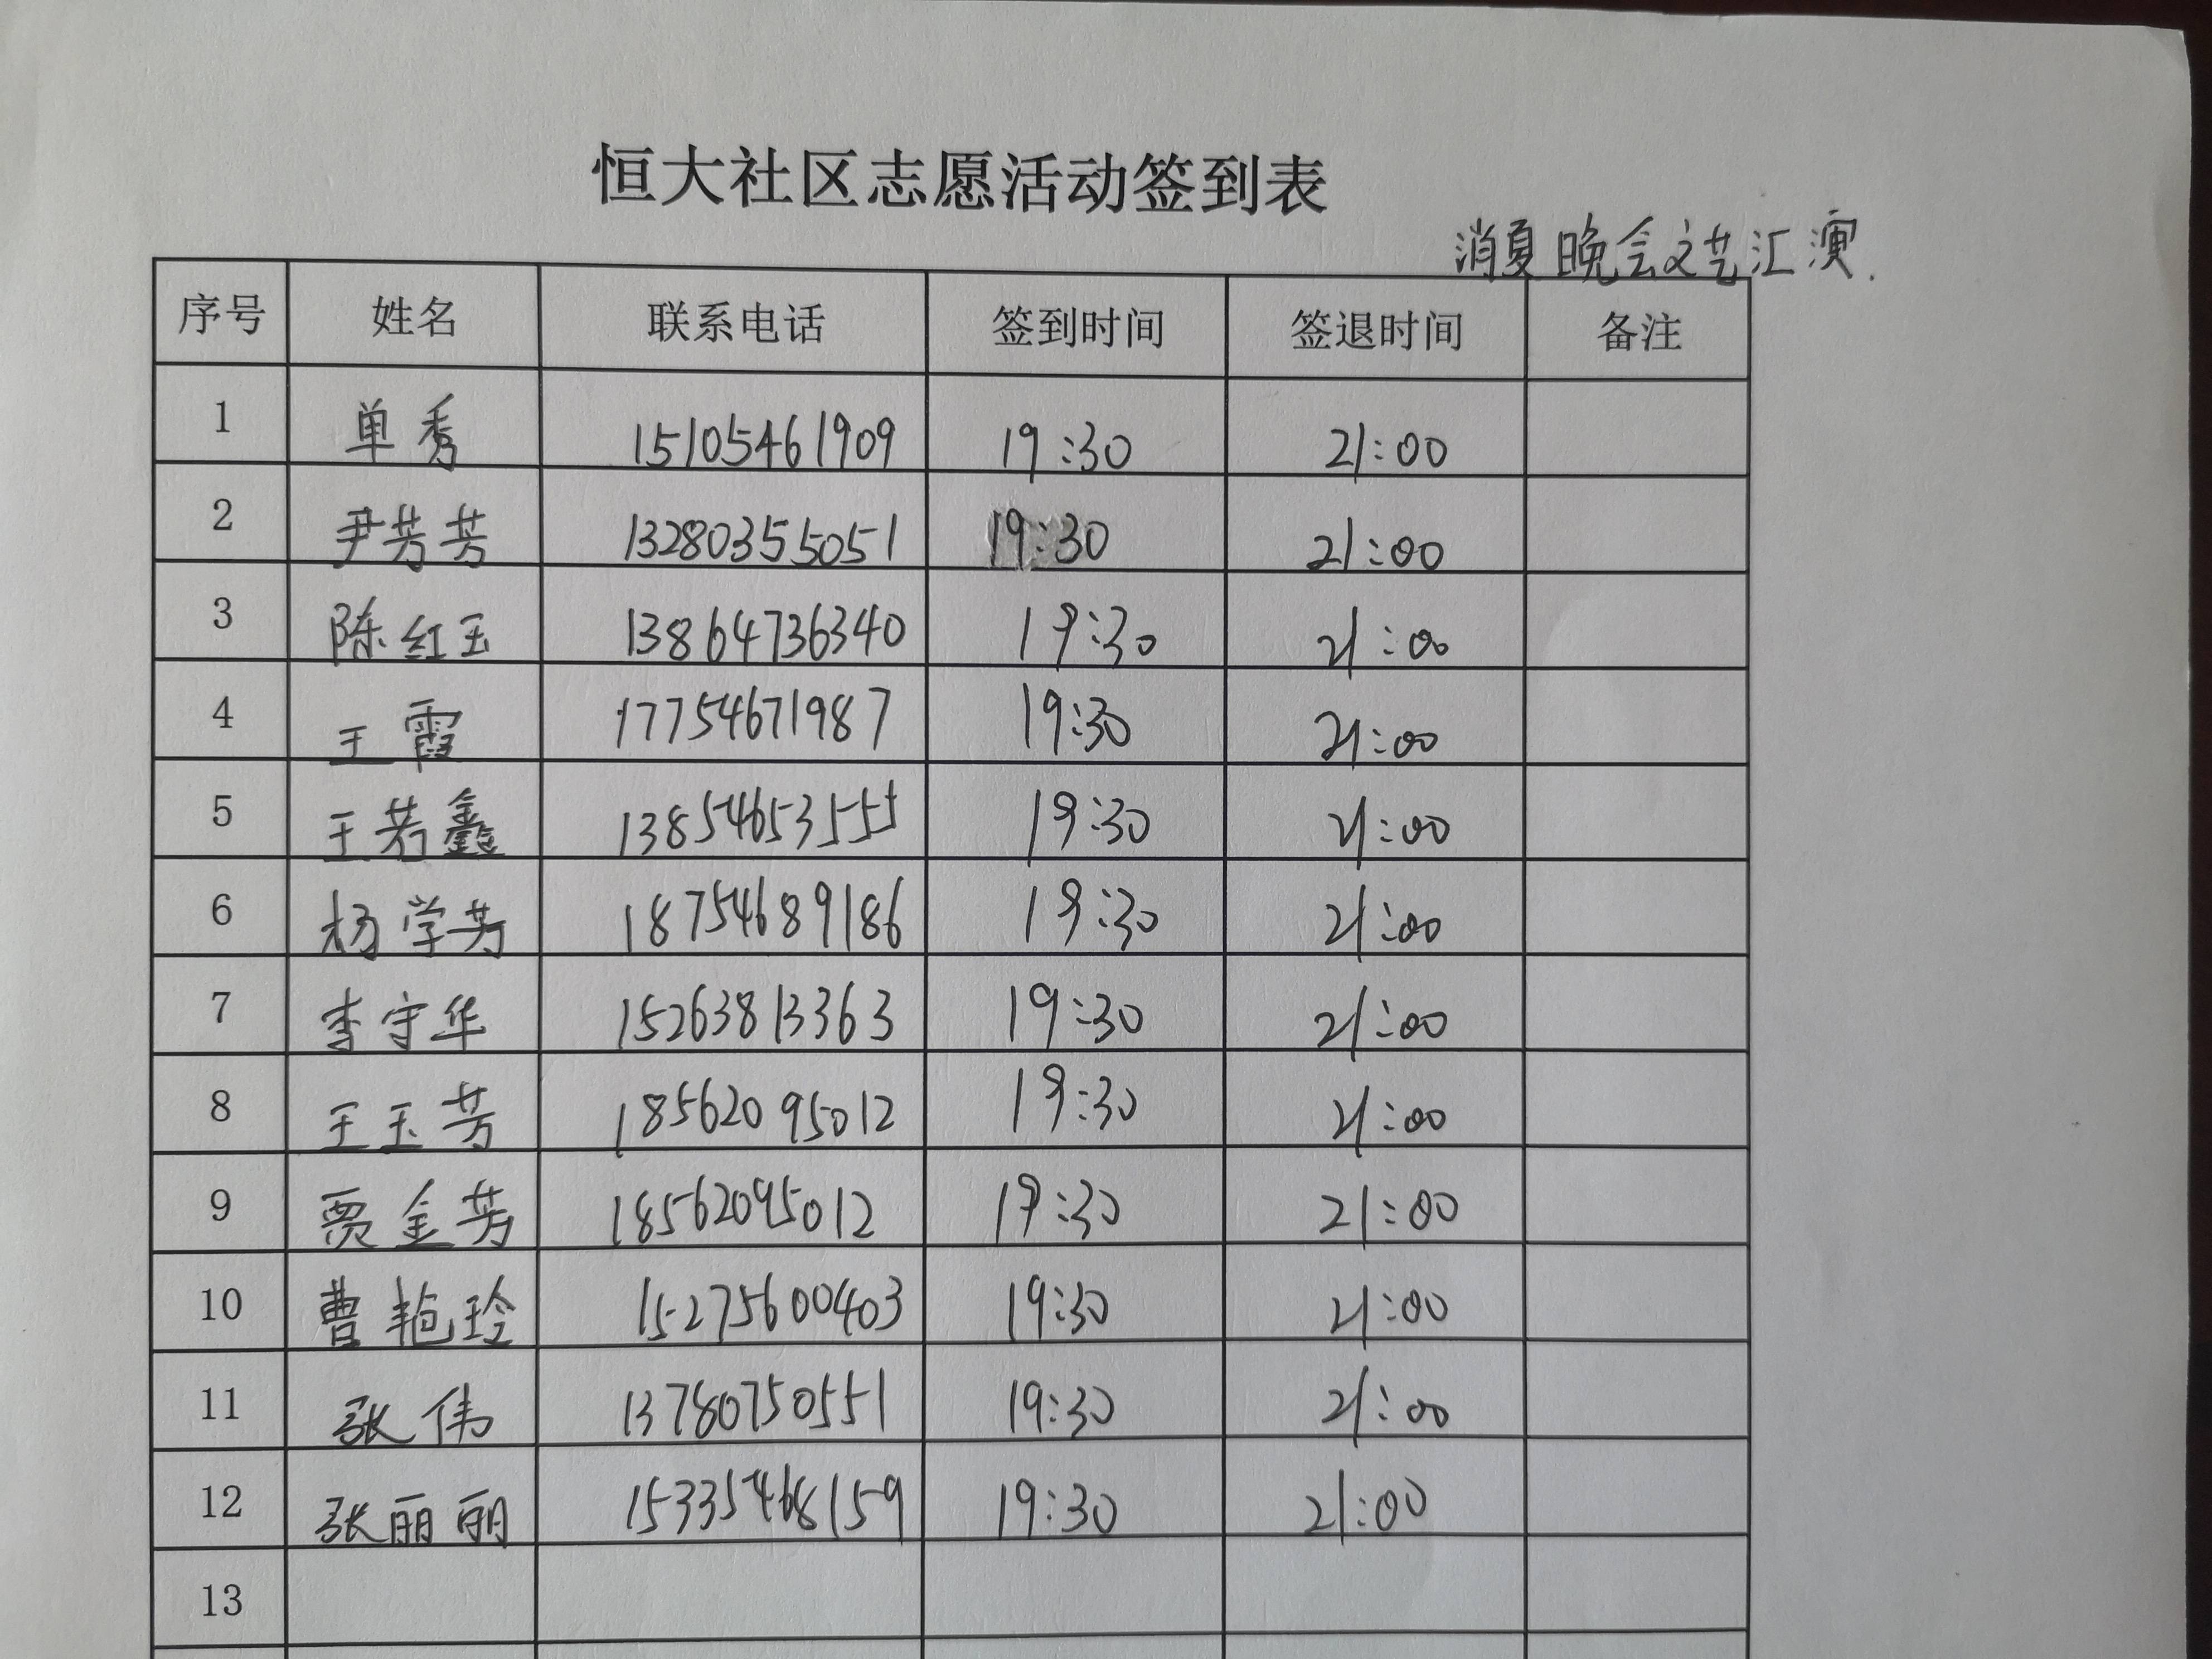 恒大社区志愿活动签到表
消夏晚会文艺汇演.
序号 姓名 联系电话 签到时间 签退时间 备注
1 单秀 15105461909 19:30 21:00
2 尹芳芳 13280355051 19:30 21:00
3 陈红玉 13864736340 19:30 21:00
4 王霞 17754671987 19:30 21:00
5 王若鑫 13854653555 19:30 21:00
6 杨学芳 18754689186 19:30 21:00
7 李守华 15263813363 19:30 21:00
8 王玉芳 18562095012 19:30 21:00
9 贾金芳 18562095012 19:30 21:00
10 曹艳玲 15275600403 19:30 21:00
11 张伟 13780750551 19:30 21:00
12 张丽丽 15335468159 19:30 21:00
13